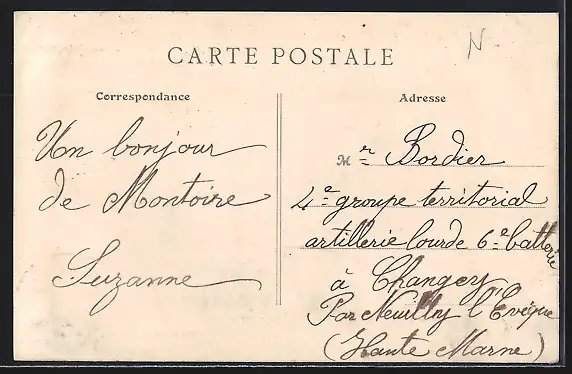 N
CARTE POSTALE
Correspondance
Un bonjour
de Montoire
Suzanne
Adresse
Mr Bordier
4e groupe territorial
artillerie lourde 6e batterie
à Changey
Par Neuilly l'Evêque
(Haute Marne)